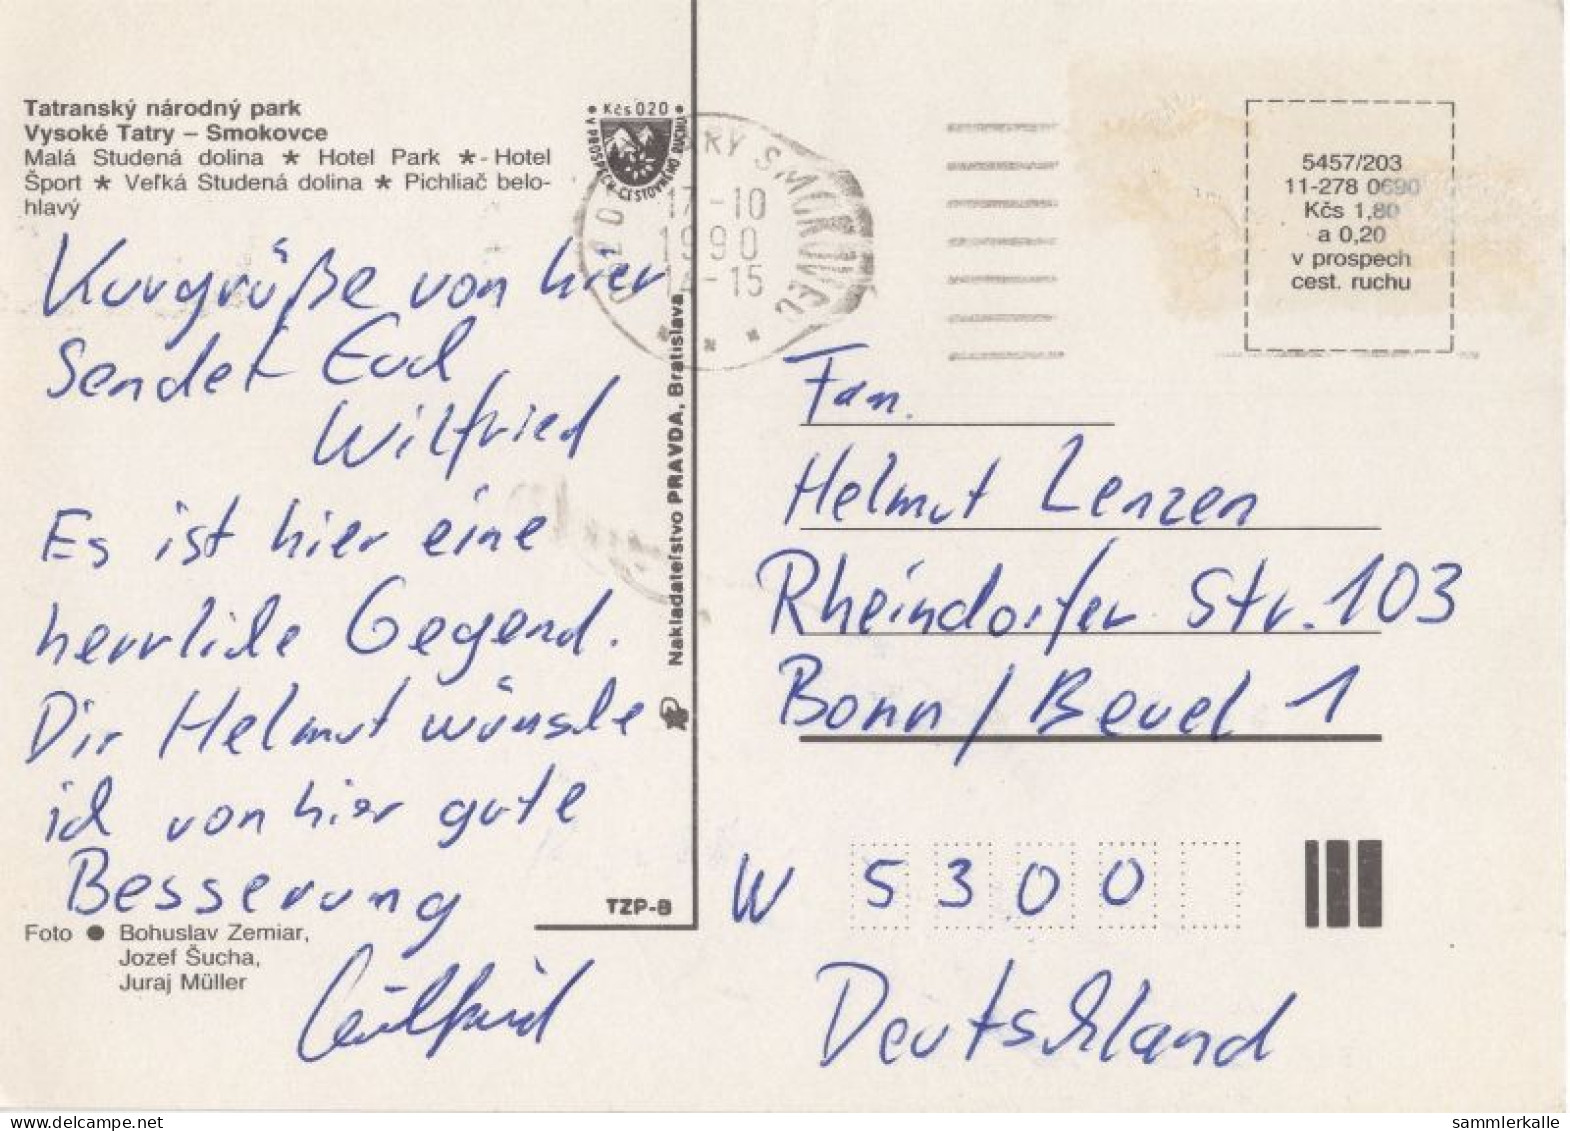 Tatranský národný park
Vysoké Tatry – Smokovce
Malá Studená dolina ★ Hotel Park ★ - Hotel
Šport ★ Veľká Studená dolina ★ Pichliač belo-
hlavý
Kurgrüße von hier
sendet Euch
Wilfried
Es ist hier eine
herrliche Gegend.
Dir Helmut wünsche
ich von hier gute
Besserung
Wilfried
Foto ● Bohuslav Zemiar,
Jozef Šucha,
Juraj Müller
• Kčs 020 •
v PROSPECH CESTOVNÉHO RUCHU
TRY SMOKOVEC
17.-10
1990
-15
Nakladateľstvo PRAVDA, Bratislava
TZP-B
5457/203
11-278 0690
Kčs 1,80
a 0,20
v prospech
cest. ruchu
Fam.
Helmut Lenzen
Rheindorfer Str. 103
Bonn / Beuel 1
W 5300
Deutschland
www.delcampe.net
sammlerkalle